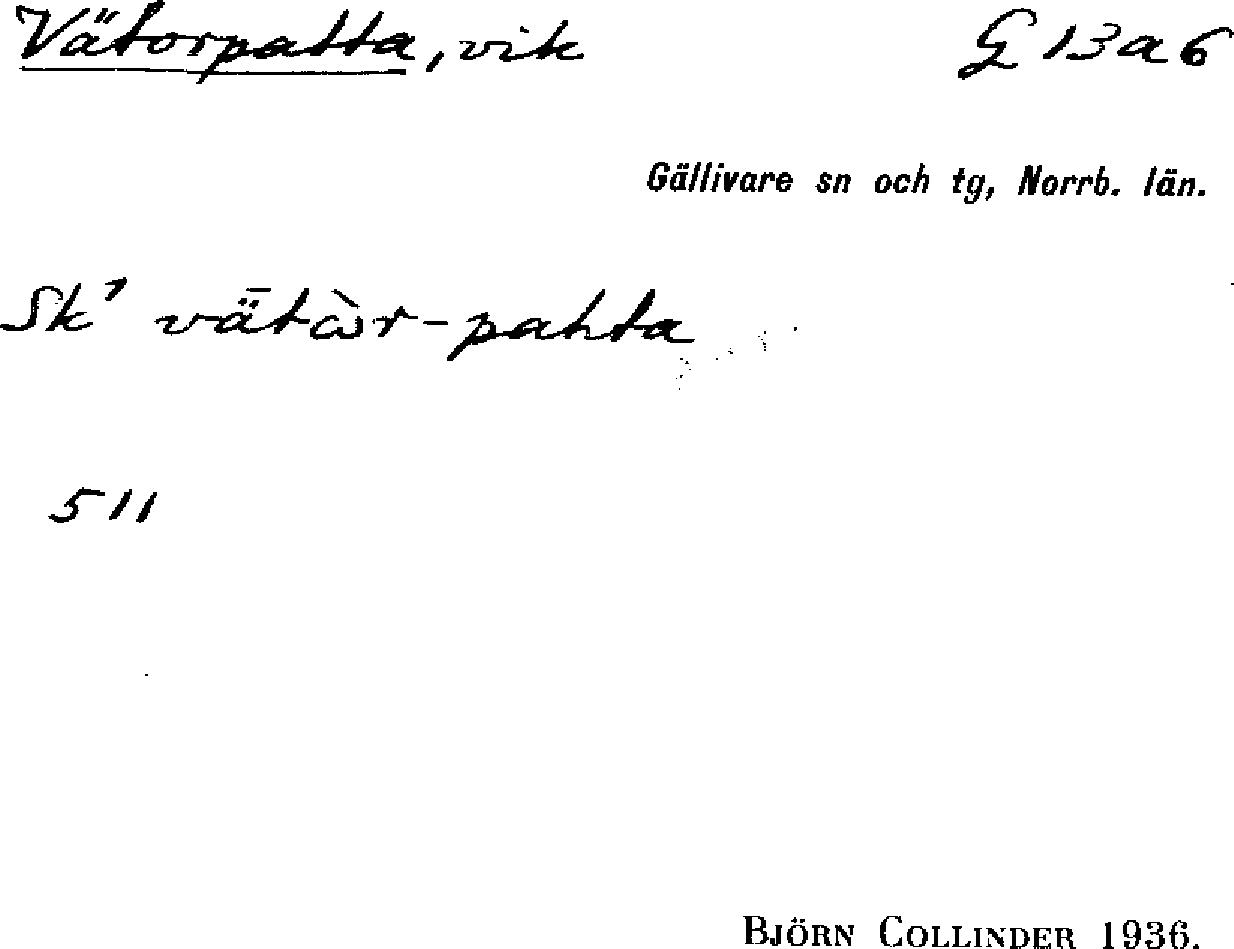 Vätorpatta, vik G 13 a 6
Gällivare sn och tg, Norrb. län.
Sk' vǟtɷ̀r-pahta
511
BJÖRN COLLINDER 1936.